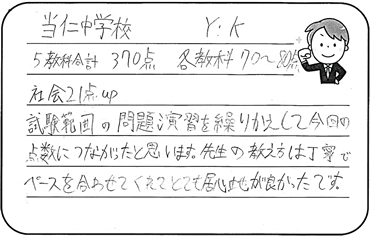 当仁中学校 Y.K
5教科合計 370点 各教科70〜80点
社会21点up
試験範囲の問題演習を繰りかえして今回の
点数につながったと思います。先生の教え方は丁寧で
ペースを合わせてくれてとても居心地が良かったです。